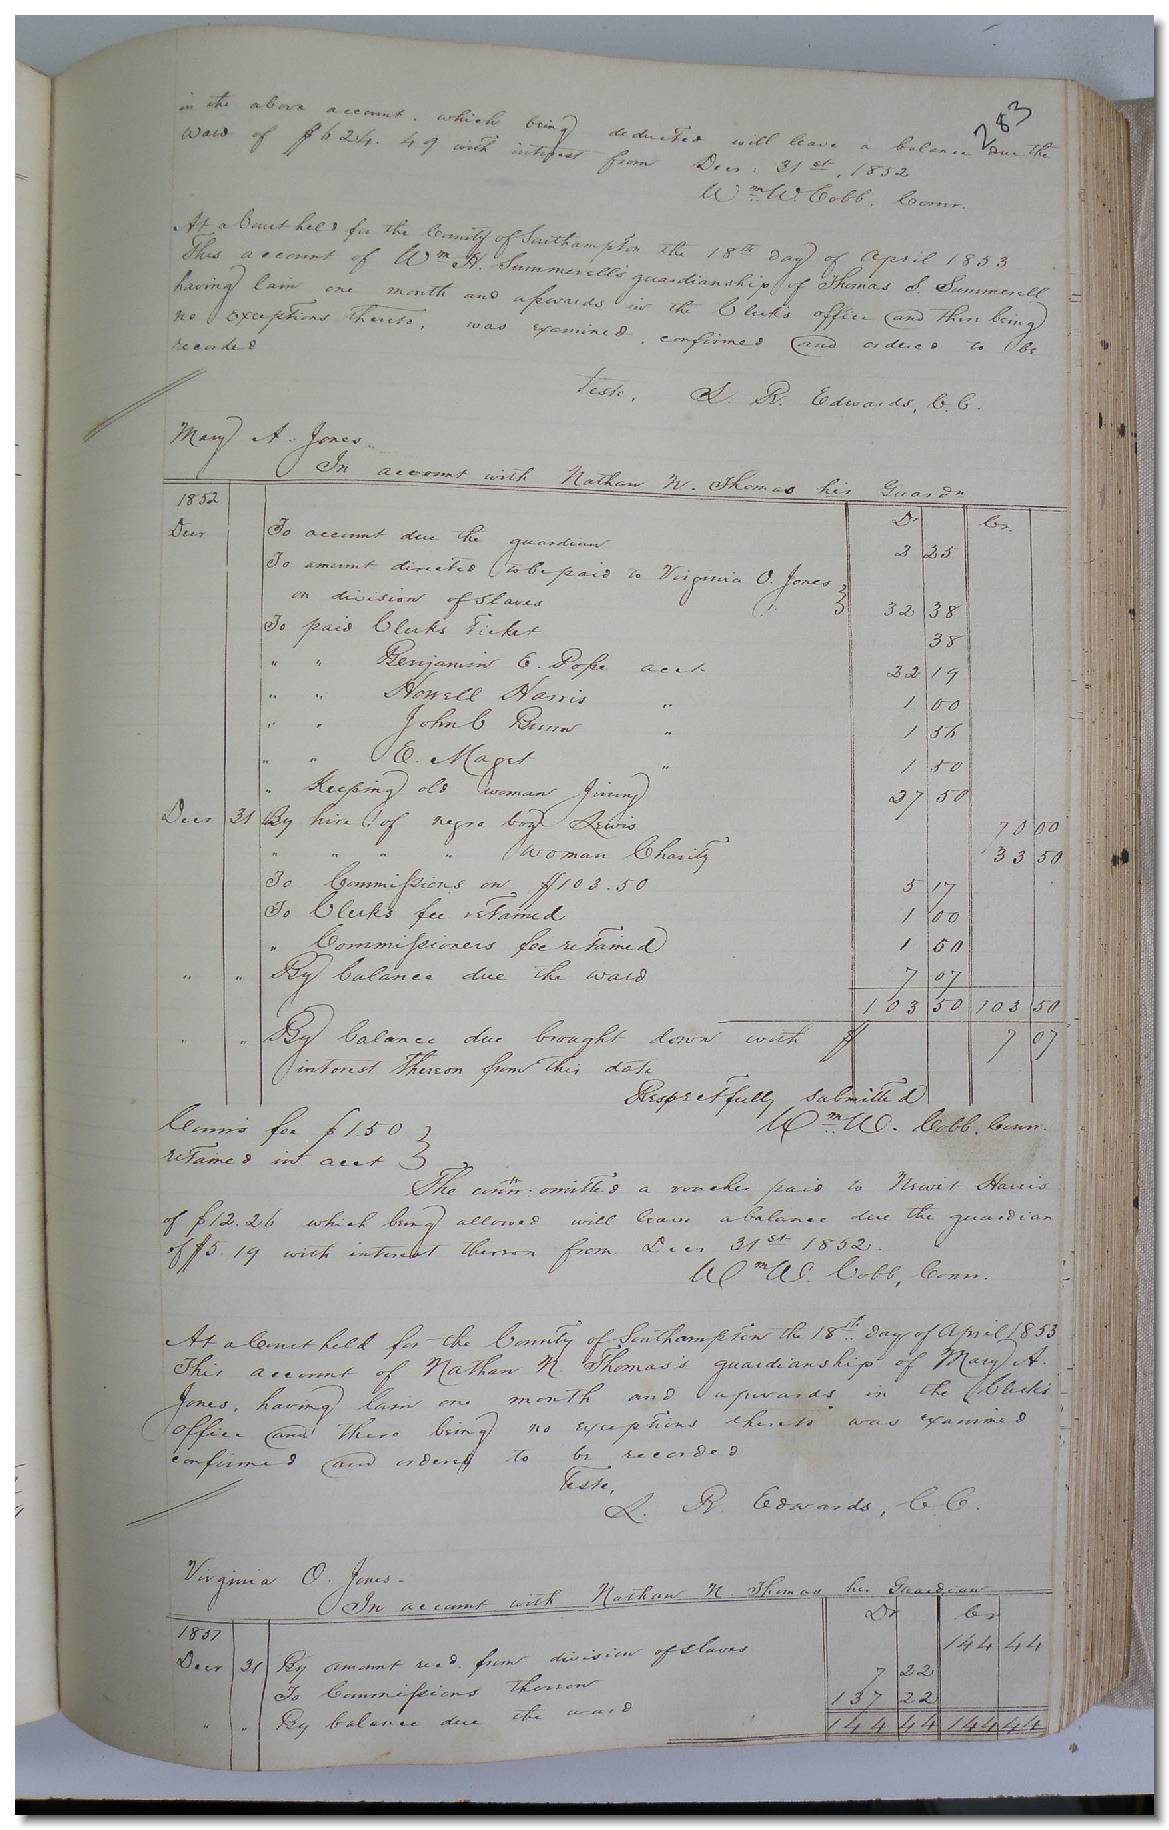 283
in the above account, which being deducted will leave a balance due the
ward of $624.49 with interest from Decr. 31st, 1852
Wm W. Cobb, Comr.
At a Court held for the County of Southampton the 18th day of April 1853
This account of Wm H. Summerell's guardianship of Thomas S. Summerell
having lain one month and upwards in the Clerks office and there being
no exceptions thereto, was examined, confirmed and ordered to be
recorded
Teste, L. R. Edwards, C.C.
Mary A. Jones
In account with Nathan N. Thomas his Guardn
1852 Dr Cr.
Decr To account due the guardian 2 25
To amount directed to be paid to Virginia O. Jones
on division of slaves 32 38
To paid Clerks Ticket 38
" " Benjamin E. Pope acct 22 19
" " Howell Harris " 1 00
" " John C Bunn " 1 56
" " E. Maget " 1 50
" Keeping old woman Jinny 27 50
Decr 31 By hire of negro boy Lewis 70 00
" " " " woman Charity 33 50
To Commissions on $103.50 5 17
To Clerks fee retained 1 00
" Commissioners fee retained 1 50
" " By balance due the ward 7 07
103 50 103 50
" " By balance due brought down with $ 7 07
interest thereon from this date
Respectfully submitted
Wm W. Cobb, Comr.
Comrs fee $1.50
retained in acct
The comr. omitted a voucher paid to Newit Harris
of $12.26 which being allowed will leave a balance due the guardian
of $5.19 with interest thereon from Decr 31st 1852.
Wm W. Cobb, Comr.
At a Court held for the County of Southampton the 18th day of April 1853
This account of Nathan N. Thomas's guardianship of Mary A.
Jones, having lain one month and upwards in the Clerks
office and there being no exceptions thereto was examined
confirmed and ordered to be recorded
Teste,
L. R. Edwards, C.C.
Virginia O. Jones
In account with Nathan N. Thomas her Guardian
1851 Dr Cr
Decr 31 By amount recd. from division of slaves 144 44
To Commissions thereon 7 22
" " By balance due the ward 137 22
144 44 144 44